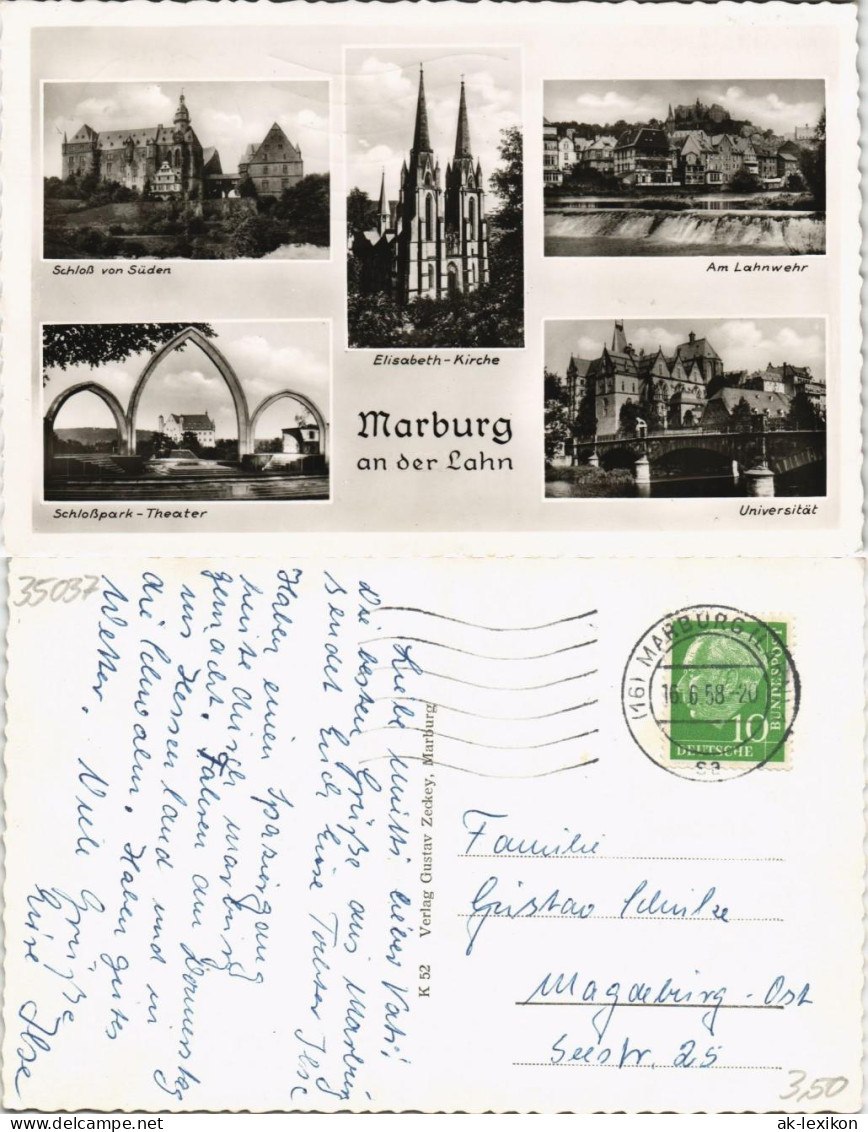 Schloß von Süden
Elisabeth-Kirche
Am Lahnwehr
Schloßpark-Theater
Marburg
an der Lahn
Universität
35037
Liebe Mutti lieber Vati!
Die besten Grüße aus Marburg
sendet Euch Eure Tochter Ilse
Haben einen Spaziergang
heute durch Marburg
gemacht. Fahren am Donnerstag
ins Hessenland und in
die Schwalm. Haben gutes
Wetter. Viele Grüße
Eure Ilse
K 52 Verlag Gustav Zeckey, Marburg
(16) MARBURG (L
16.6.58-20
sa
10
DEUTSCHE
BUNDESPOST
Familie
Gustav Schulze
Magdeburg-Ost
Seestr. 25
3,50
ak-lexikon